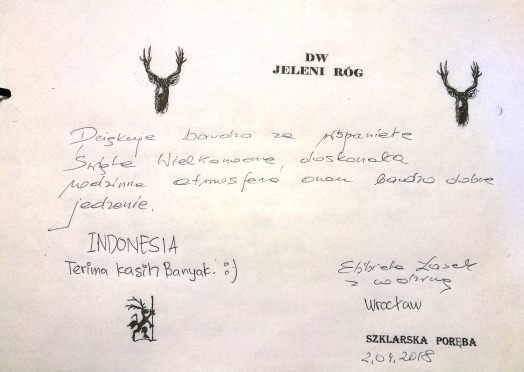 DW
JELENI RÓG
Dziękuję bardzo za wspaniałe
Święta Wielkanocne, doskonałą
rodzinną atmosferę oraz bardzo dobre
jedzenie.
INDONESIA
Terima kasih Banyak. :)
Elżbieta
z rodziną
Wrocław
SZKLARSKA PORĘBA
2.04.2018